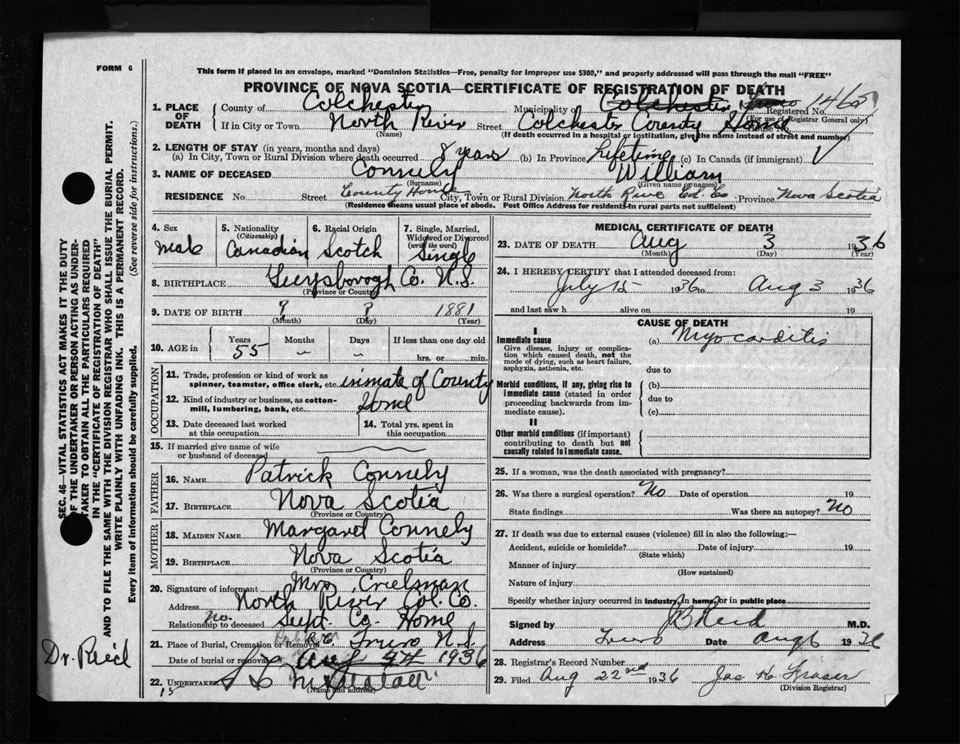 FORM 6
This form if placed in an envelope, marked "Dominion Statistics—Free, penalty for improper use $300," and properly addressed will pass through the mail "FREE"
PROVINCE OF NOVA SCOTIA—CERTIFICATE OF REGISTRATION OF DEATH
1. PLACE OF DEATH County of Colchester Municipality of Colchester Registered No. 1465
(For use of Registrar General only)
If in City or Town North River Street Colchester County Home
(Name) (If death occurred in a hospital or institution, give the name instead of street and number)
2. LENGTH OF STAY (in years, months and days)
(a) In City, Town or Rural Division where death occurred 8 years (b) In Province Lifetime (c) In Canada (if immigrant)
3. NAME OF DECEASED Connely William
(Surname) (Given name or names)
RESIDENCE No. Street County Home City, Town or Rural Division North River Col. Co Province Nova Scotia
(Residence means usual place of abode. Post Office Address for residents in rural parts not sufficient)
4. Sex male
5. Nationality (Citizenship) Canadian
6. Racial Origin Scotch
7. Single, Married, Widowed or Divorced (write the word) Single
8. BIRTHPLACE Guysborogh Co. N.S.
(Province or Country)
9. DATE OF BIRTH ? ? 1881
(Month) (Day) (Year)
10. AGE in Years 55 Months – Days – If less than one day old
hrs. or min.
OCCUPATION
11. Trade, profession or kind of work as spinner, teamster, office clerk, etc. inmate of County
12. Kind of industry or business, as cotton-mill, lumbering, bank, etc. Home
13. Date deceased last worked at this occupation
14. Total yrs. spent in this occupation
15. If married give name of wife or husband of deceased
FATHER
16. NAME Patrick Connely
17. BIRTHPLACE Nova Scotia
(Province or Country)
MOTHER
18. MAIDEN NAME Margaret Connely
19. BIRTHPLACE Nova Scotia
(Province or Country)
20. Signature of informant Mrs. Creelman
Address North River Col. Co.
Relationship to deceased No. Supt. Co. Home
21. Place of Burial, Cremation or Removal R.C. Truro N.S.
Date of burial or removal Aug 5th 1936
22. Undertaker
(Name and address)
MEDICAL CERTIFICATE OF DEATH
23. DATE OF DEATH Aug 3 1936
(Month) (Day) (Year)
24. I HEREBY CERTIFY that I attended deceased from:
July 15 1936 to Aug 3 1936
and last saw h alive on 19
CAUSE OF DEATH
I
Immediate cause
Give disease, injury or complication which caused death, not the mode of dying, such as heart failure, asphyxia, asthenia, etc.
(a) Myocarditis
due to
Morbid conditions, if any, giving rise to immediate cause (stated in order proceeding backwards from immediate cause).
(b)
due to
(c)
II
Other morbid conditions (if important) contributing to death but not causally related to immediate cause.
25. If a woman, was the death associated with pregnancy?
26. Was there a surgical operation? No Date of operation 19
State findings Was there an autopsy? No
27. If death was due to external causes (violence) fill in also the following:—
Accident, suicide or homicide? Date of injury 19
(State which)
Manner of injury
(How sustained)
Nature of injury
Specify whether injury occurred in industry, in home, or in public place
Signed by J B Reid M.D.
Address Truro Date Aug 6 1936
28. Registrar's Record Number
29. Filed Aug 22nd 1936 Jas K. Fraser
(Division Registrar)
SEC. 46—VITAL STATISTICS ACT MAKES IT THE DUTY
OF THE UNDERTAKER OR PERSON ACTING AS UNDER-
TAKER TO OBTAIN ALL THE PARTICULARS REQUIRED
IN THE "CERTIFICATE OF REGISTRATION OF DEATH"
AND TO FILE THE SAME WITH THE DIVISION REGISTRAR WHO SHALL ISSUE THE BURIAL PERMIT.
WRITE PLAINLY WITH UNFADING INK. THIS IS A PERMANENT RECORD.
Every item of information should be carefully supplied. (See reverse side for instructions.)
Dr. Reid